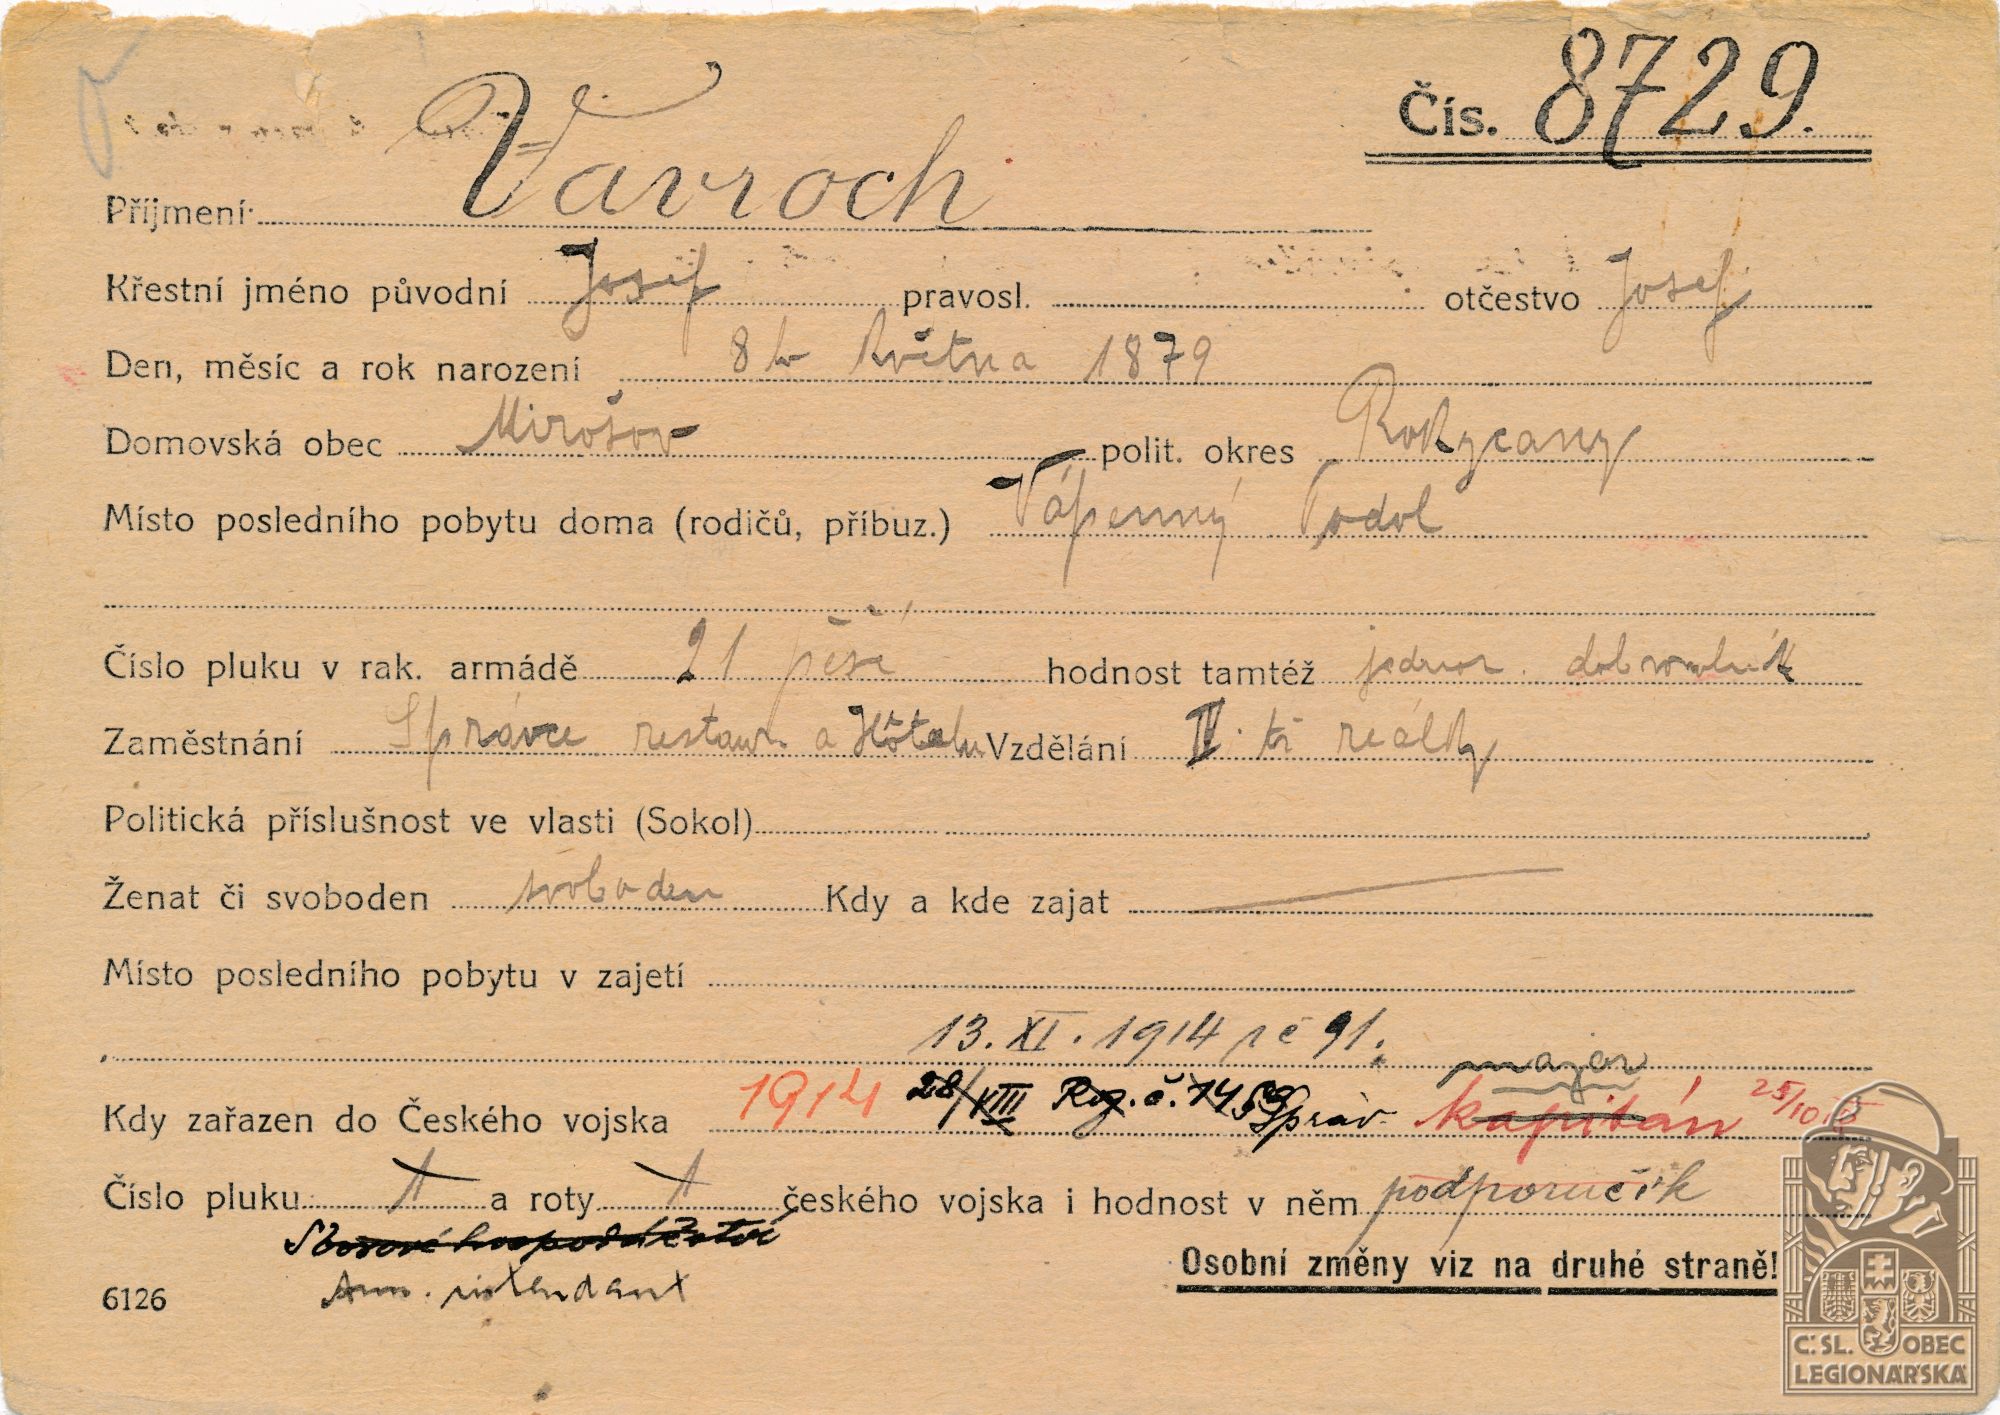 Čís. 8729.
Příjmení: Vavroch
Křestní jméno původní Josef pravosl. otčestvo Josef
Den, měsíc a rok narození 8 ho Května 1879
Domovská obec Mirošov polit. okres Rokycany
Místo posledního pobytu doma (rodičů, příbuz.) Vápenný Podol
Číslo pluku v rak. armádě 21 pěší hodnost tamtéž jednor. dobrovolník
Zaměstnání Správce restaur. a Hôtelu Vzdělání IV. tř reálky
Politická příslušnost ve vlasti (Sokol)
Ženat či svoboden svoboden Kdy a kde zajat
Místo posledního pobytu v zajetí
13. XI. 1914 rč 91. major
Kdy zařazen do Českého vojska 1914 28/VIII Roz. č. 1459 Správ. kapitán 25/10
Číslo pluku 1 a roty 1 českého vojska i hodnost v něm podporučík
Sborové hospodářství
Osobní změny viz na druhé straně!
6126 Arm. intendant
Č. SL. OBEC
LEGIONÁŘSKÁ